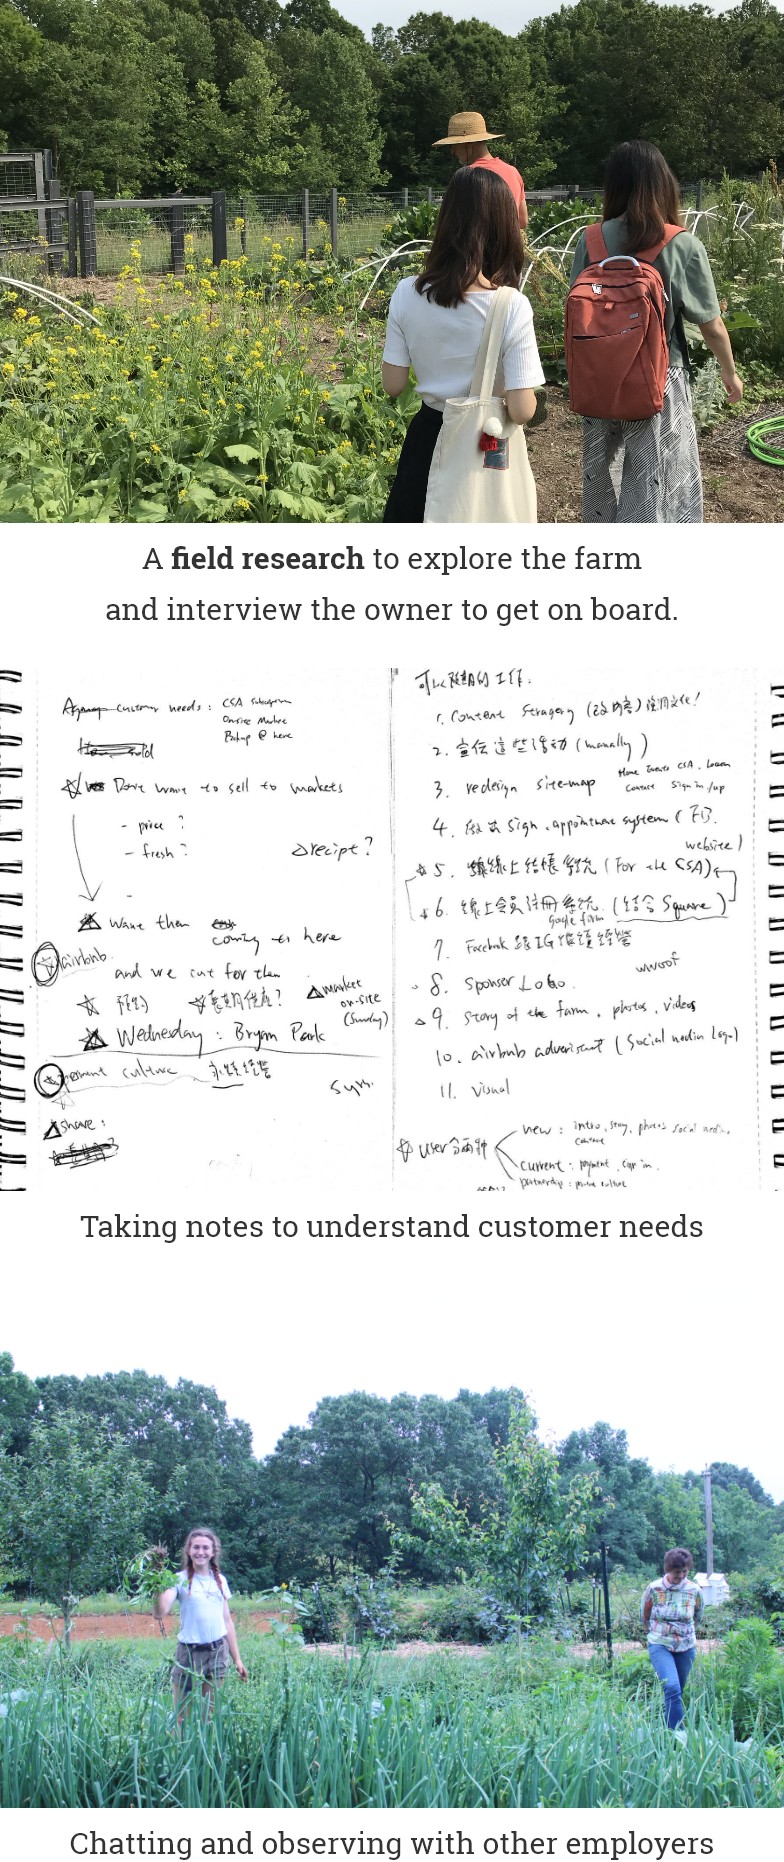 A field research to explore the farm
and interview the owner to get on board.
customer needs : CSA
On-site Market
Pickup @ here
Dont want to sell to markets
- price ?
- fresh ?
△ recipt ?
-
Want them coming to here
airbnb
and we cut for them
預約
△ market
on-site
(Sunday)
Wednesday : Bryan Park
culture 永續經營
Sym.
△ share :
可以預期的工作:
1. Content Stragery (改內容) 強調文化!
2. 宣伝這些活動 (manually)
3. redesign site-map Home Events CSA . Learn
Contact Sign in/up
4. sign . appointment system ( FB.
website )
☆ 5. 線上結帳系統 ( For the CSA )
☆ 6. 線上会員註冊系統 ( 結合 Square )
google form
7. Facebook 跟 IG 維護經營
8. Sponser Logo.
wwoof
△ 9. Story of the farm , photos , videos
10. airbnb ( Social media Logo )
11. visual
☆ User 分兩种
new : intro , story , photos social media,
contact
current : payment , sign in .
partnership : culture
Taking notes to understand customer needs
Chatting and observing with other employers